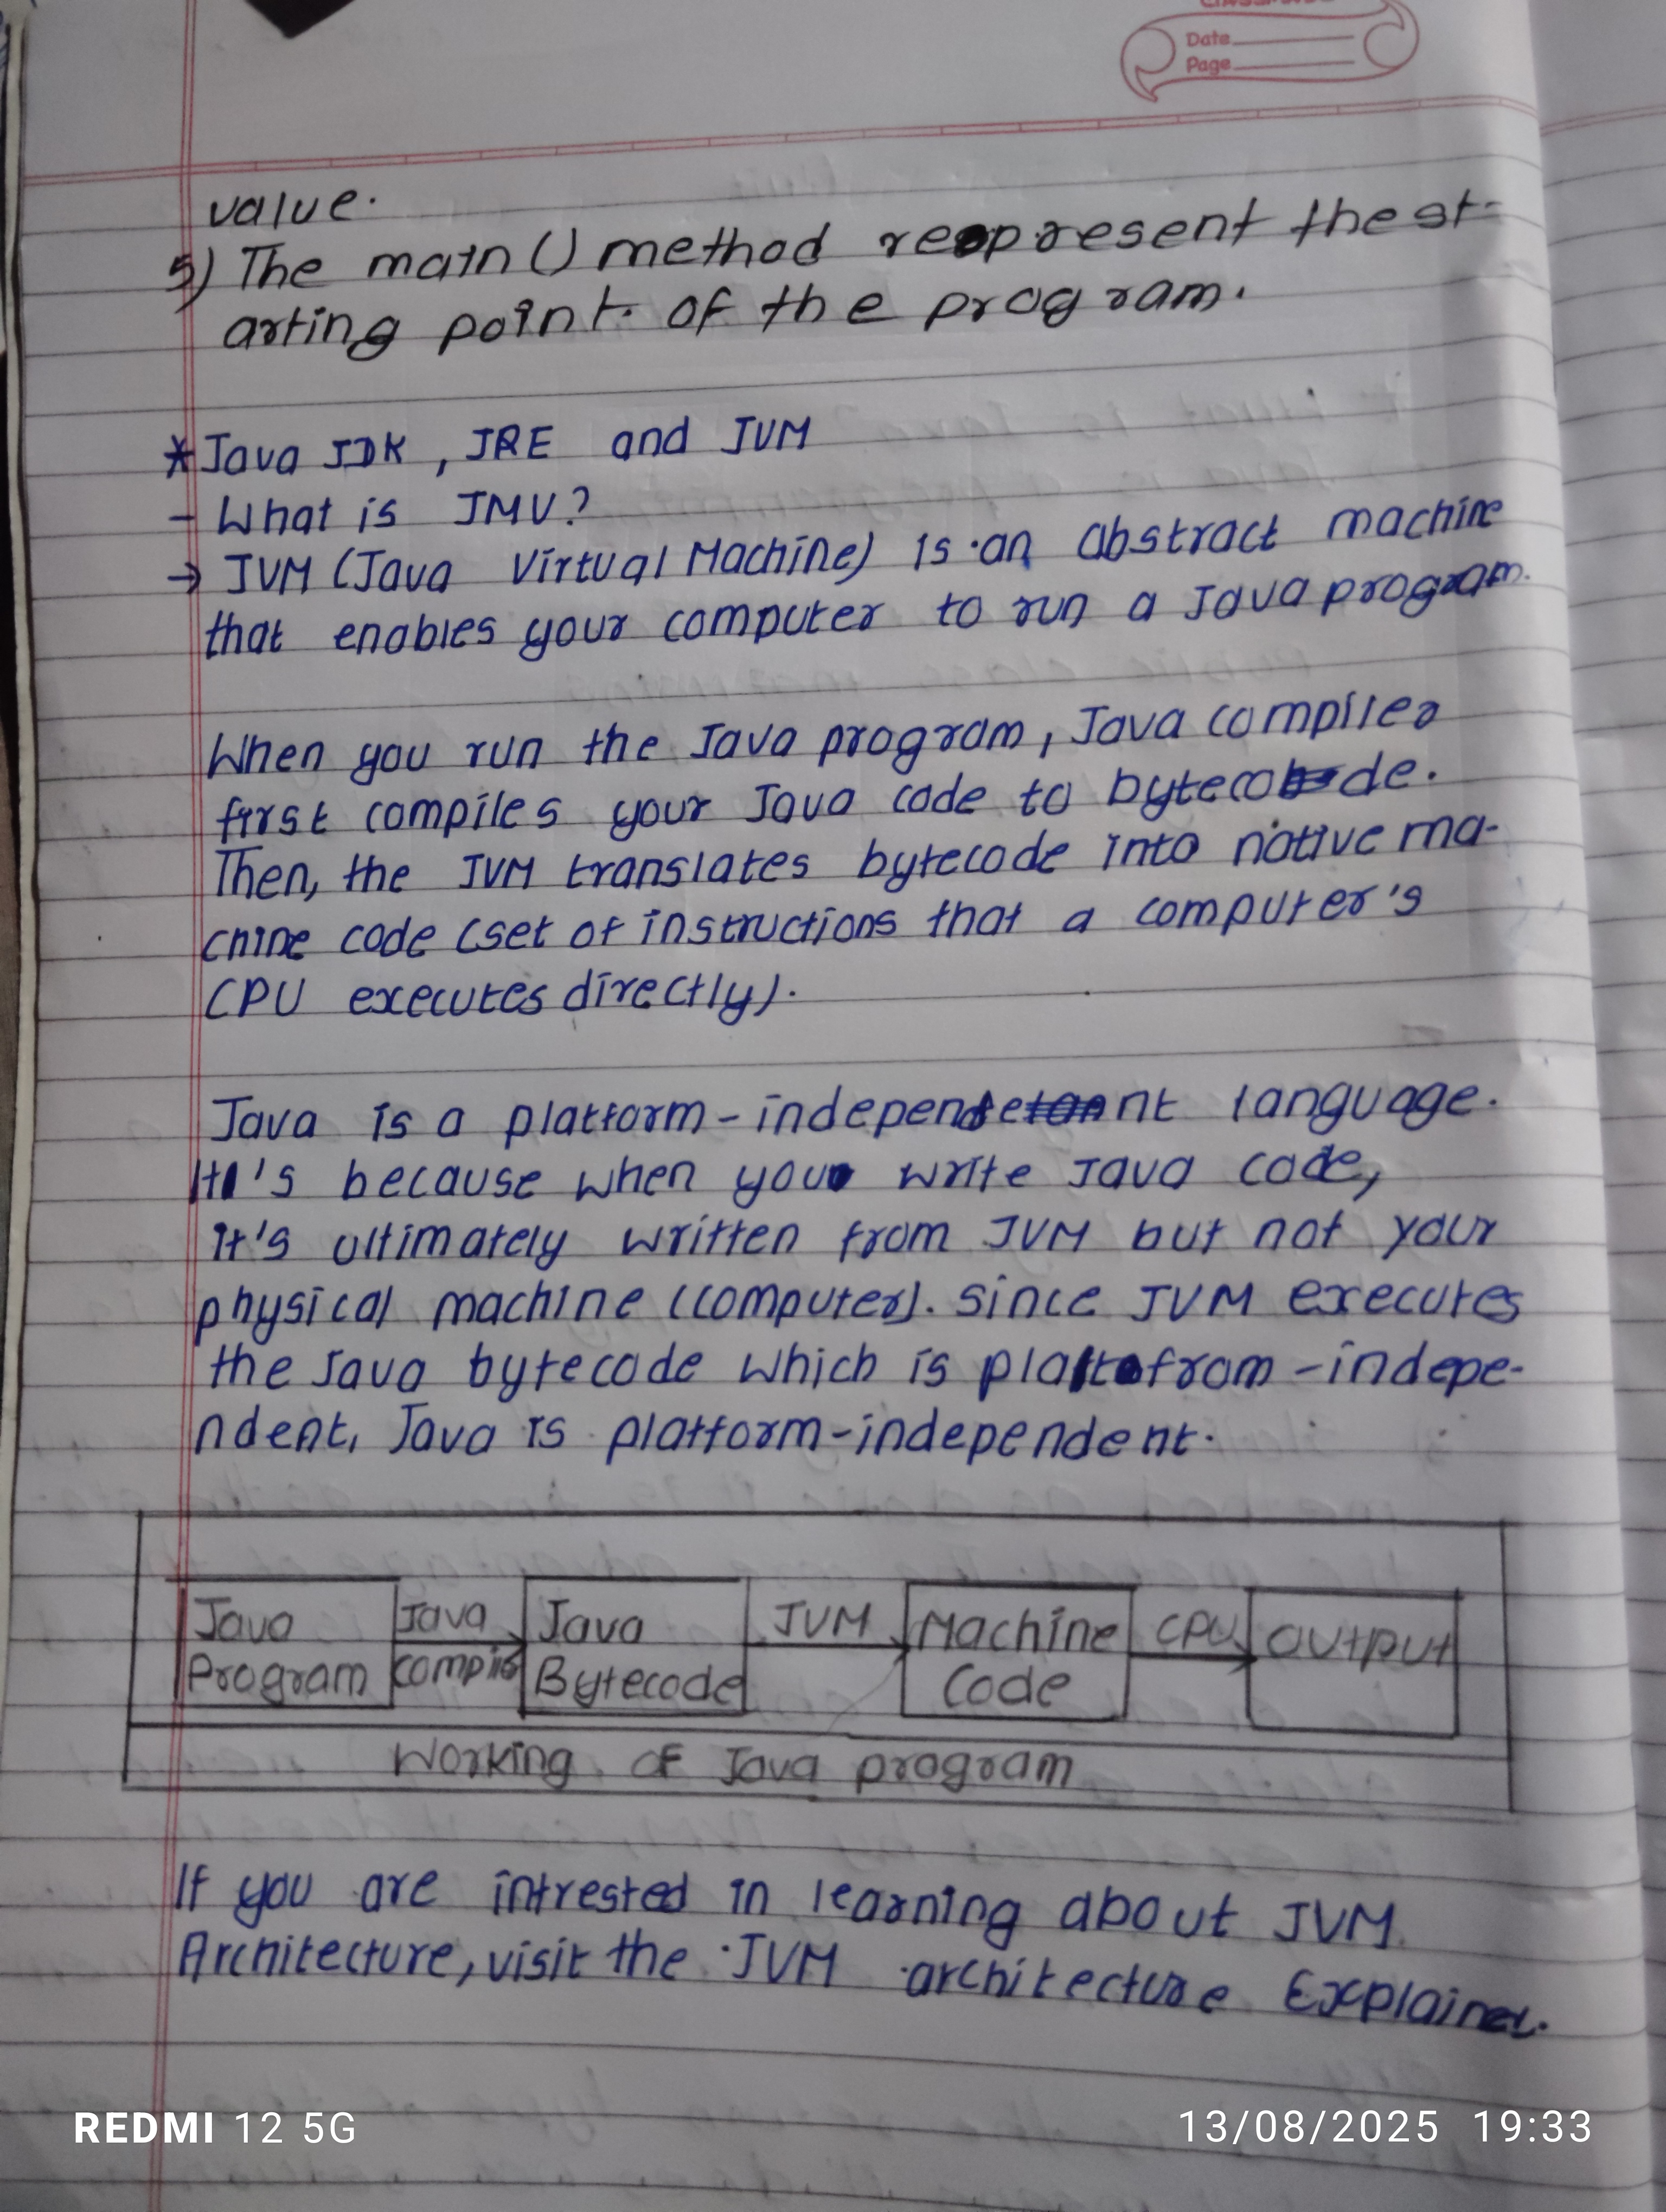 Date
Page
value.
5) The main () method reopresent the st-
arting point. of the program.
* Java JDK, JRE and JVM
- What is JMV?
→ JVM (Java Virtual Machine) is an abstract machine
that enables your computer to run a Java program.
When you run the Java program, Java compiler
first compiles your Java code to bytecode.
Then, the JVM translates bytecode into native ma-
chine code (set of instructions that a computer's
CPU executes directly).
Java is a platform-independent language.
It's because when you write Java code,
it's ultimately written from JVM but not your
physical machine (computer). since JVM executes
the Java bytecode which is platfrom-indepe-
ndent, Java is platform-independent.
Java Program
Java
Java Bytecode
JVM
Machine Code
CPU
output
Working of Java program
If you are intrested in learning about JVM
Architecture, visit the JVM architecture Explainer.
REDMI 12 5G
13/08/2025 19:33